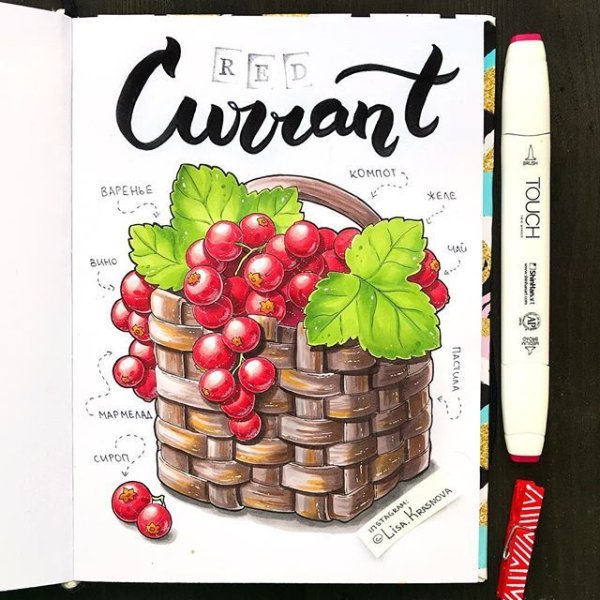 RED
Currant
ВАРЕНЬЕ
КОМПОТ
ЖЕЛЕ
ВИНО
ЧАЙ
ПАСТИЛА
МАРМЕЛАД
СИРОП
INSTAGRAM:
© Lisa.KRASNOVA
BRUSH
TOUCH
ShinHanart